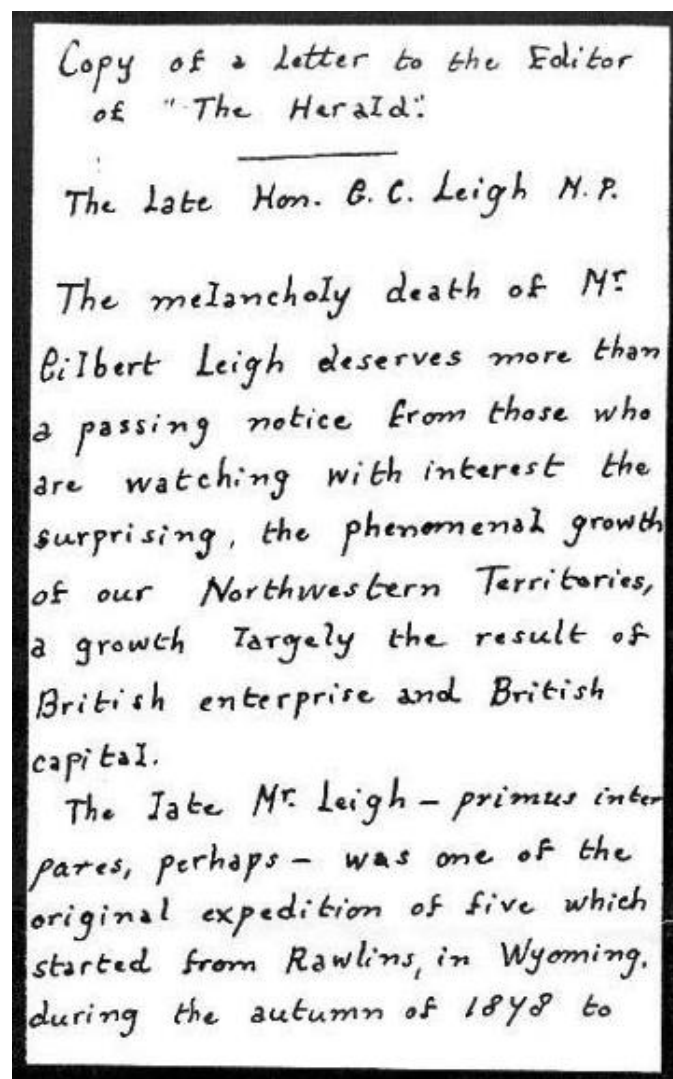 Copy of a Letter to the Editor
of "The Herald".
The Late Hon. G. C. Leigh M. P.
The melancholy death of Mr.
Gilbert Leigh deserves more than
a passing notice from those who
are watching with interest the
surprising, the phenomenal growth
of our Northwestern Territories,
a growth largely the result of
British enterprise and British
capital.
The late Mr. Leigh – primus inter
pares, perhaps – was one of the
original expedition of five which
started from Rawlins, in Wyoming,
during the autumn of 1878 to